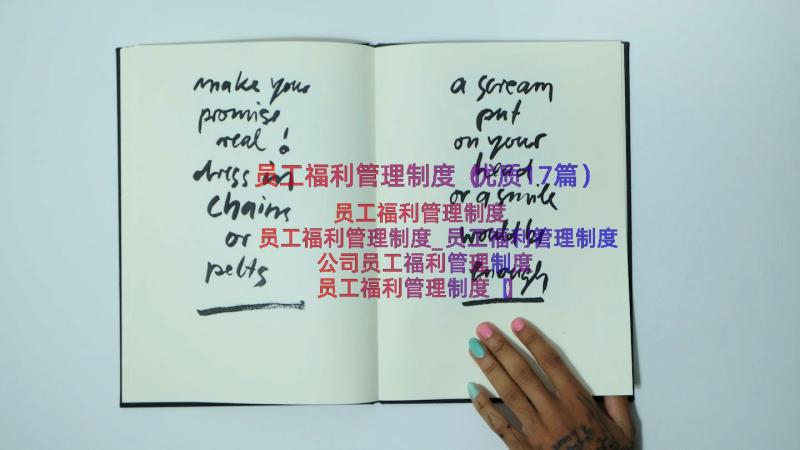 make your
promise
real!
dress in
chains
or
pelts
a scream
put
on your
head
or a smile
would be
enough
员工福利管理制度（优质17篇）
员工福利管理制度
员工福利管理制度_员工福利管理制度
公司员工福利管理制度
员工福利管理制度